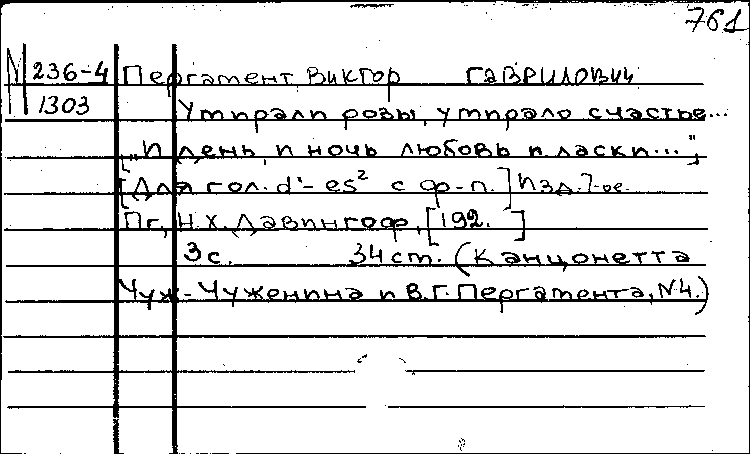 761
N 236-4 Пергамент, Виктор Гаврилович
1303 Умирали розы, умирало счастье...
„И день, и ночь любовь и ласки..."
[Для гол. d'-es² с ф-п.] Изд. 7-ое.
Пг, Н.Х. Давингоф, [192. ]
3с. 34см. (Канцонетта
Чуж-Чуженина и В.Г. Пергамента, N4.)